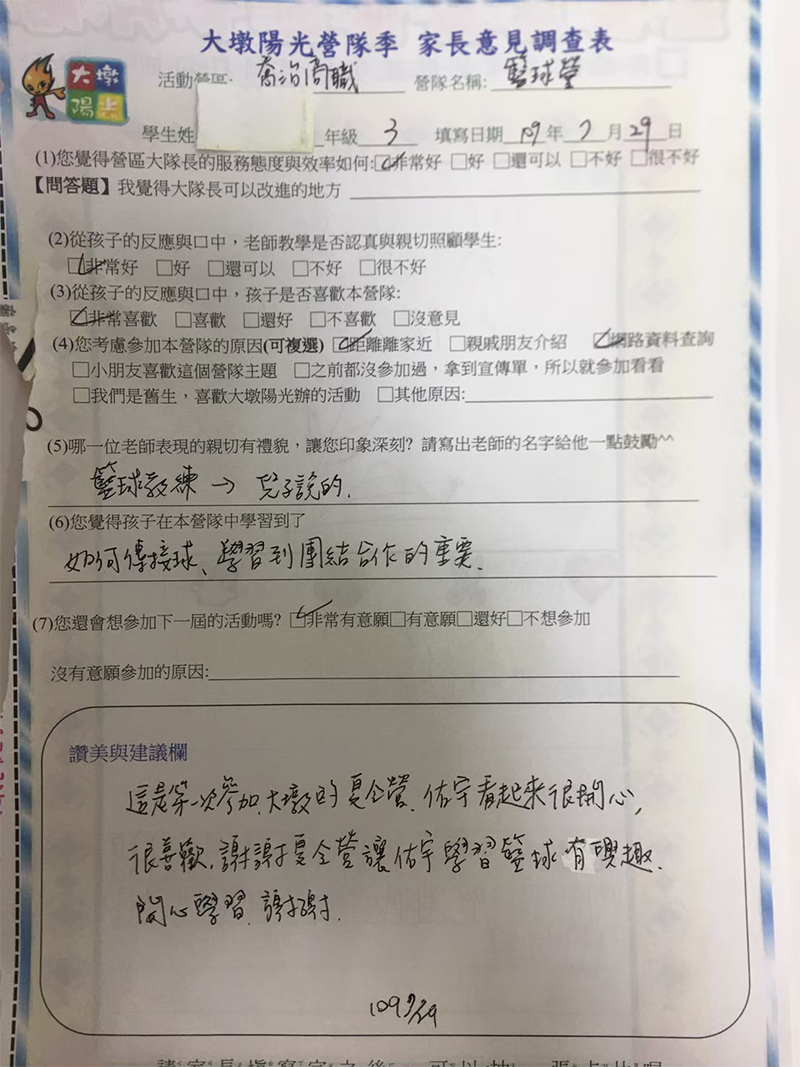 大墩陽光營隊季 家長意見調查表
大墩
陽光
活動營區: 喬治商職 營隊名稱: 籃球營
學生姓 年級 3 填寫日期 109 年 7 月 29 日
(1)您覺得營區大隊長的服務態度與效率如何:☑非常好 □好 □還可以 □不好 □很不好
【問答題】我覺得大隊長可以改進的地方
(2)從孩子的反應與口中，老師教學是否認真與親切照顧學生:
☑非常好 □好 □還可以 □不好 □很不好
(3)從孩子的反應與口中，孩子是否喜歡本營隊:
☑非常喜歡 □喜歡 □還好 □不喜歡 □沒意見
(4)您考慮參加本營隊的原因(可複選) ☑距離離家近 □親戚朋友介紹 ☑網路資料查詢
□小朋友喜歡這個營隊主題 □之前都沒參加過，拿到宣傳單，所以就參加看看
□我們是舊生，喜歡大墩陽光辦的活動 □其他原因:
(5)哪一位老師表現的親切有禮貌，讓您印象深刻? 請寫出老師的名字給他一點鼓勵^^
籃球教練 → 兒子說的.
(6)您覺得孩子在本營隊中學習到了
如何傳接球、學習到團結合作的重要.
(7)您還會想參加下一屆的活動嗎? ☑非常有意願□有意願□還好□不想參加
沒有意願參加的原因:
讚美與建議欄
這是第一次參加大墩的夏令營. 佑宇看起來很開心,
很喜歡, 謝謝夏令營讓佑宇學習籃球有興趣.
開心學習. 謝謝.
109 7/29